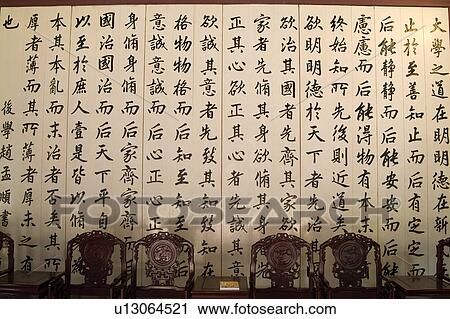 大學之道在明明德在新
止於至善知止而后有定
后能靜靜而后能安安而后
慮慮而后能得物有本末
終始知所先後則近道矣
欲明明德於天下者先治其
欲治其國者先齊其家欲
家者先脩其身欲脩其身
正其心欲正其心者先誠其意
欲誠其意者先致其知致知在
格物物格而后知至知至
意誠意誠而后心正心正
身脩身脩而后家齊家齊
國治國治而后天下平自
以至於庶人壹是皆以脩
本其本亂而末治者否矣其
厚者薄而其所薄者厚未之有
也
後學趙孟頫書
Fotosearch
u13064521
www.fotosearch.com